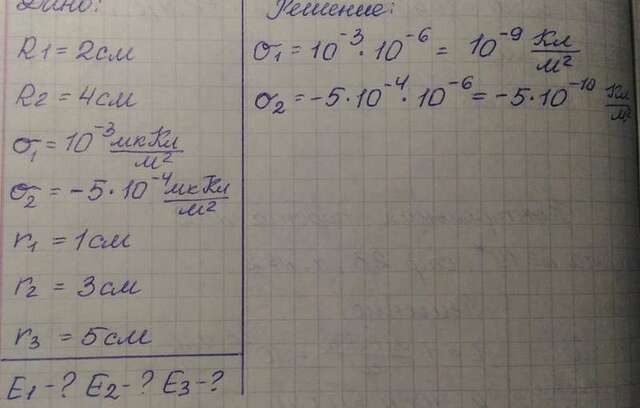 Дано:
R1 = 2см
R2 = 4см
σ1 = 10^-3 мкКл/м²
σ2 = -5·10^-4 мкКл/м²
r1 = 1см
r2 = 3см
r3 = 5см
E1-? E2-? E3-?
Решение:
σ1 = 10^-3 · 10^-6 = 10^-9 Кл/м²
σ2 = -5·10^-4 · 10^-6 = -5·10^-10 Кл/м²